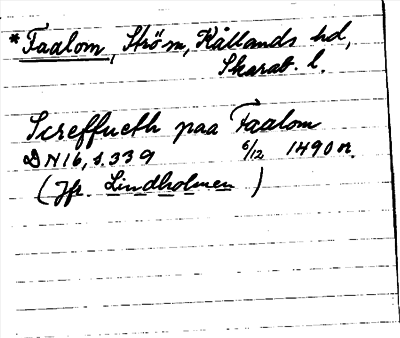 *Faalom, Ström, Kållands hd,
Skarab. l.
Screffueth paa Faalom
DN 16, s. 339 6/12 1490 n.
(Jfr. Lindholmen)